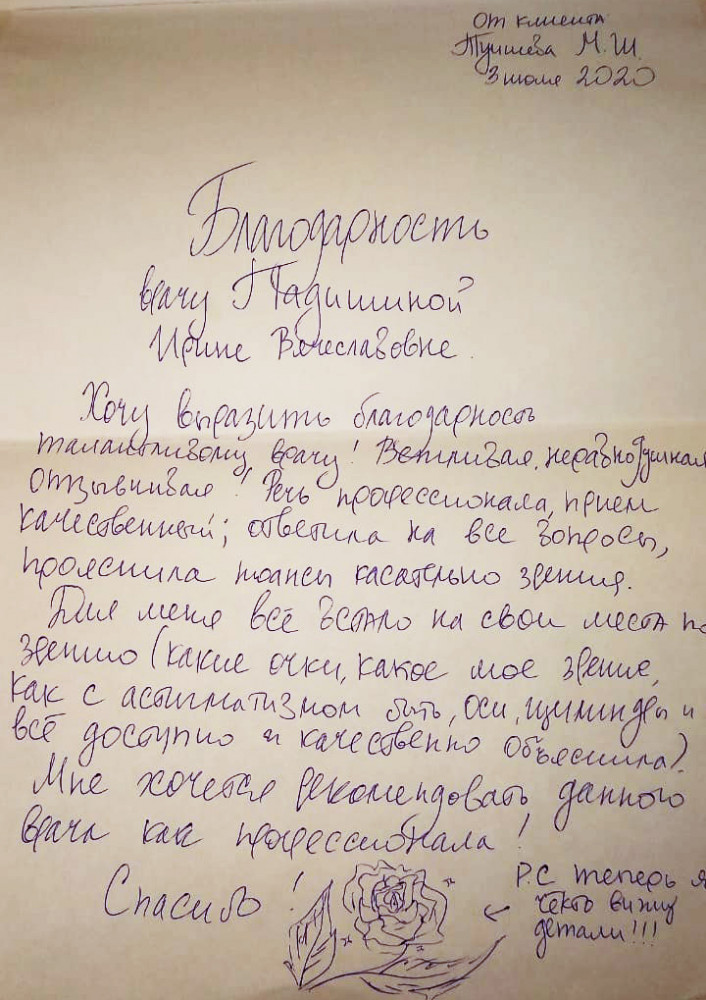 От клиента
Туншева М. Ш.
3 июля 2020
Благодарность
врачу Падишиной
Ирине Вячеславовне.
Хочу выразить благодарность
талантливому врачу! Вежливая, неравнодушная
отзывчивая! Речь профессионала, прием
качественный; ответила на все вопросы,
прояснила нюансы касательно зрения.
Для меня всё встало на свои места по
зрению (какие очки, какое мое зрение,
как с астигматизмом быть, оси, цилиндры и
всё доступно и качественно объяснила).
Мне хочется рекомендовать данного
врача как профессионала!
Спасибо!
P.S теперь я
чётко вижу
детали!!!